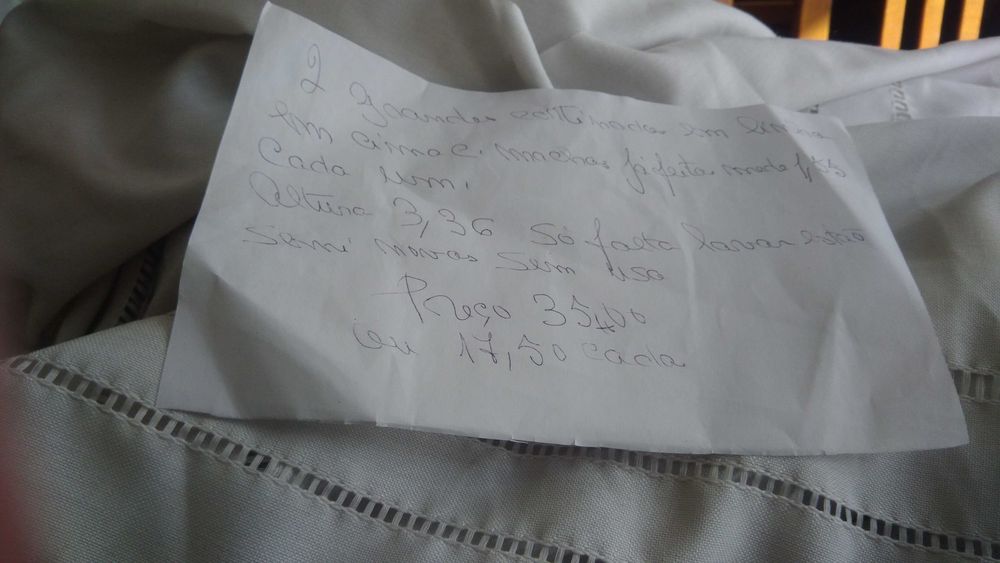 2 grandes cortinados em linho
em cima e
cada um.
Altura 3,36 só falta lavar estão
semi novas sem uso
Preço 35,00
ou 17,50 cada